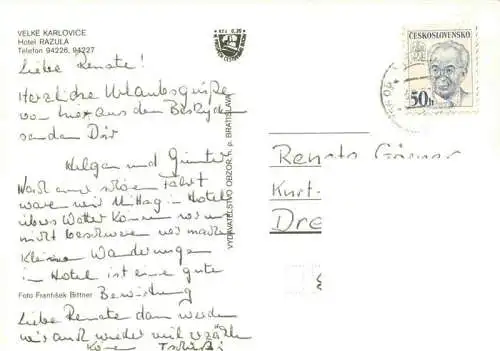 VELKE KARLOVICE
Hotel RAZULA
Telefon 94226, 94227
Liebe Renate!
Herzliche Urlaubsgrüße
von hier aus den Beskyden
senden Dir
Helga und Günter
Nach einer schönen Fahrt
waren wir Mittag in Hotel
übers Wetter können wir uns
nicht beschweren wir machen
kleine Wanderungen
im Hotel ist eine gute
Foto František Bittner Bewirtung
Liebe Renate dann werden
wir auch wieder viel erzählen
können Tschüß
VYDAVATELSTVO OBZOR, n. p. BRATISLAVA
ČESKOSLOVENSKO
50h
Renate
Kurt-
Dre